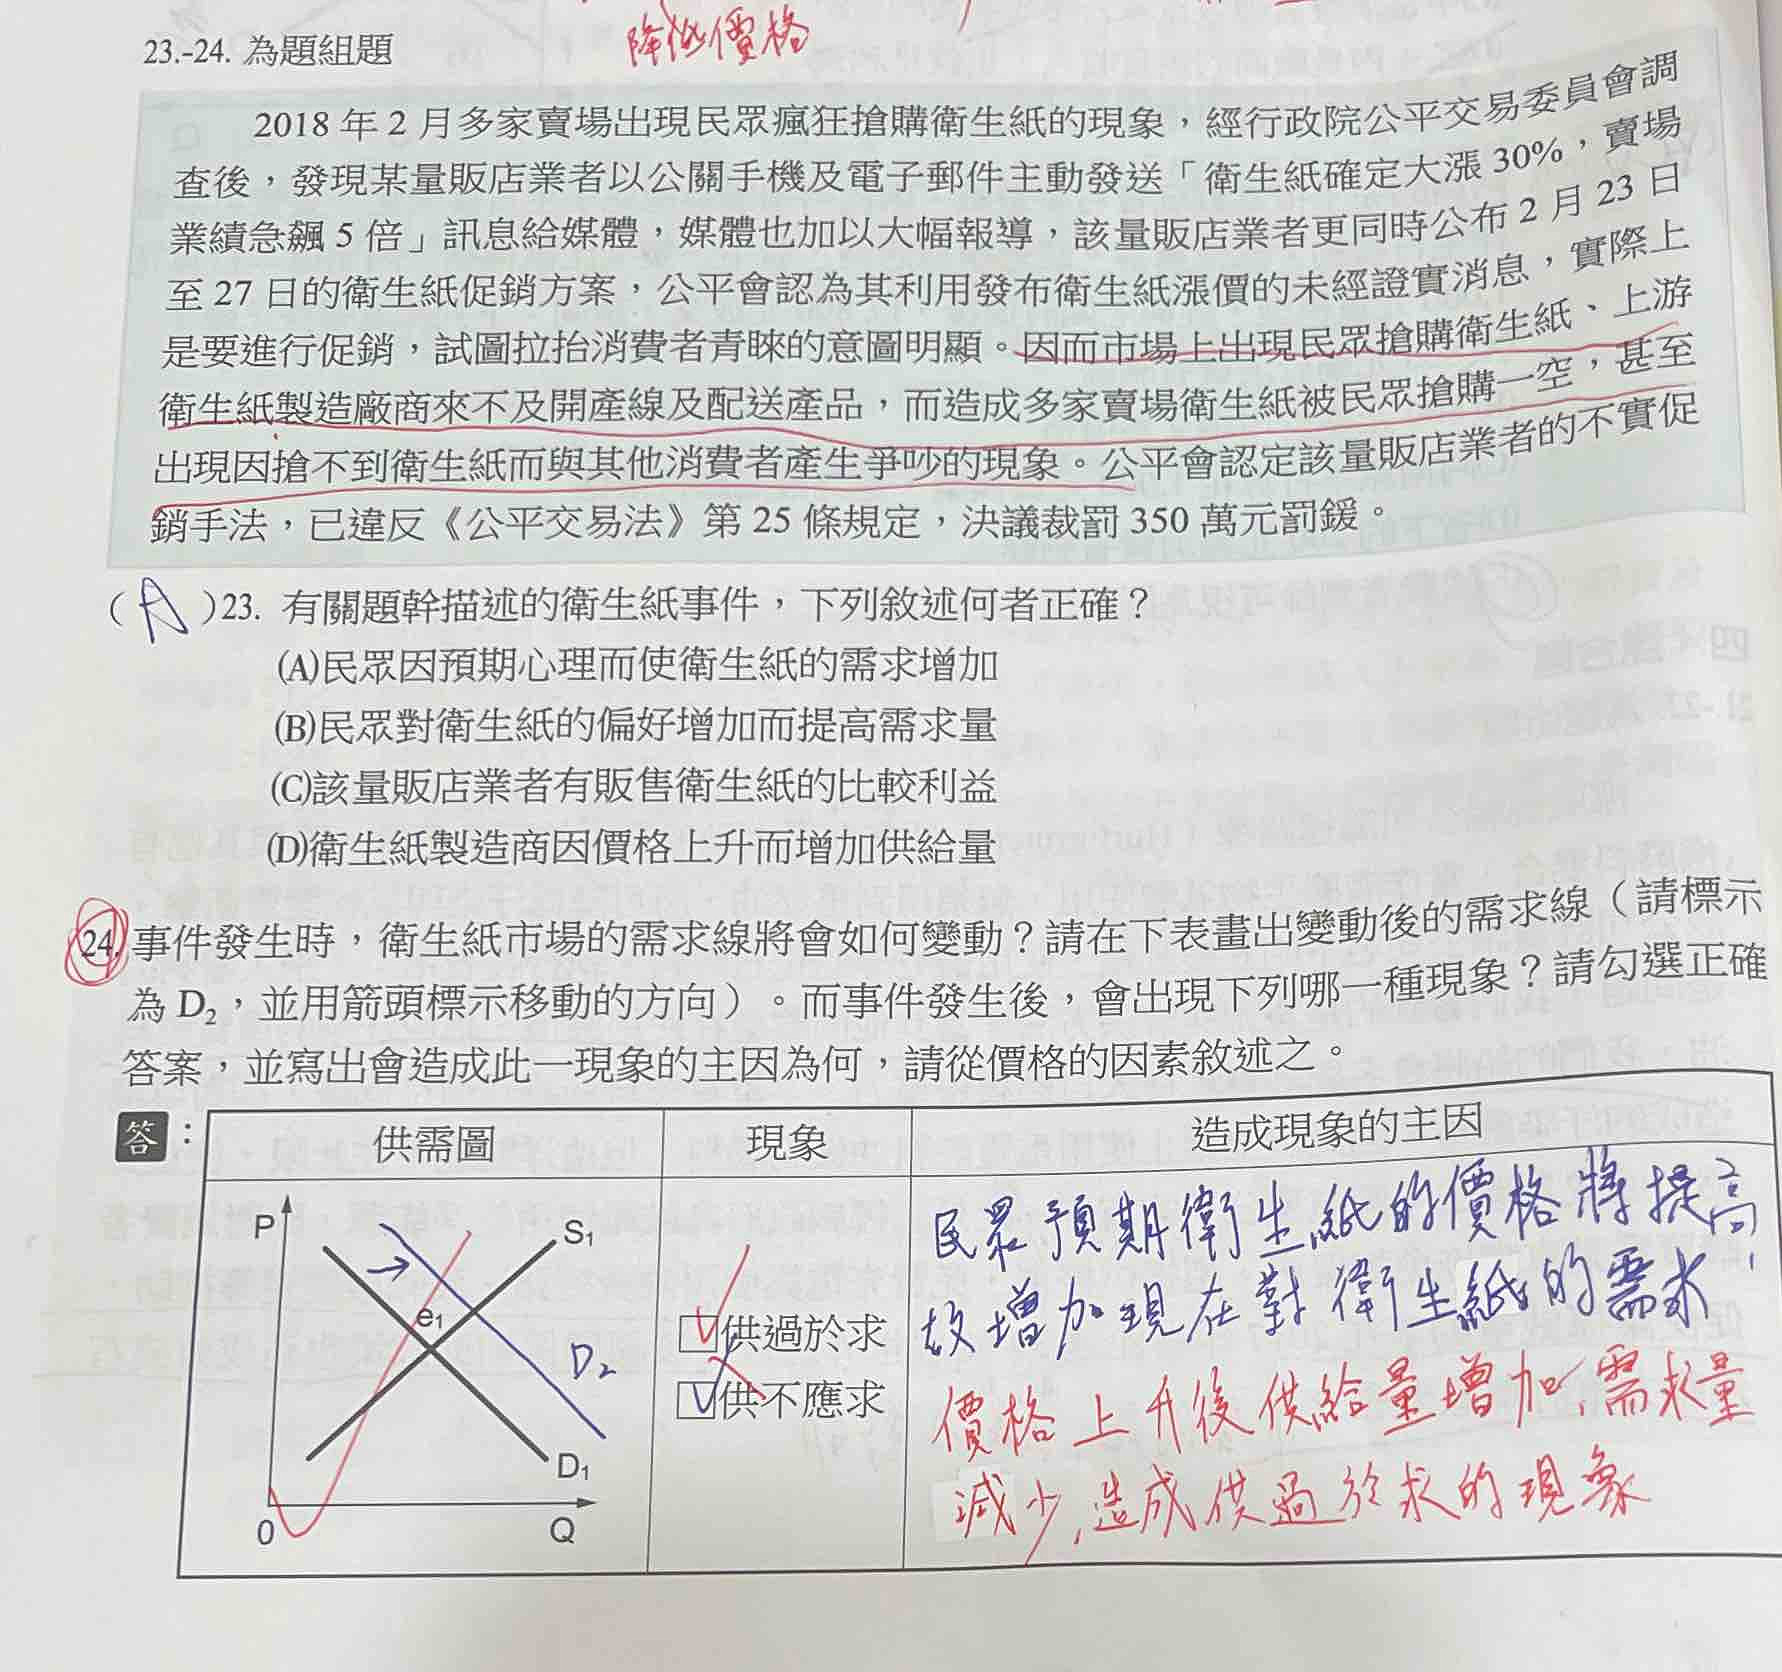 降低價格
23.-24. 為題組題
2018 年 2 月多家賣場出現民眾瘋狂搶購衛生紙的現象，經行政院公平交易委員會調
查後，發現某量販店業者以公關手機及電子郵件主動發送「衛生紙確定大漲 30%，賣場
業績急飆 5 倍」訊息給媒體，媒體也加以大幅報導，該量販店業者更同時公布 2 月 23 日
至 27 日的衛生紙促銷方案，公平會認為其利用發布衛生紙漲價的未經證實消息，實際上
是要進行促銷，試圖拉抬消費者青睞的意圖明顯。因而市場上出現民眾搶購衛生紙、上游
衛生紙製造廠商來不及開產線及配送產品，而造成多家賣場衛生紙被民眾搶購一空，甚至
出現因搶不到衛生紙而與其他消費者產生爭吵的現象。公平會認定該量販店業者的不實促
銷手法，已違反《公平交易法》第 25 條規定，決議裁罰 350 萬元罰鍰。
（A）23. 有關題幹描述的衛生紙事件，下列敘述何者正確？
(A)民眾因預期心理而使衛生紙的需求增加
(B)民眾對衛生紙的偏好增加而提高需求量
(C)該量販店業者有販售衛生紙的比較利益
(D)衛生紙製造商因價格上升而增加供給量
24. 事件發生時，衛生紙市場的需求線將會如何變動？請在下表畫出變動後的需求線（請標示
為 D₂，並用箭頭標示移動的方向）。而事件發生後，會出現下列哪一種現象？請勾選正確
答案，並寫出會造成此一現象的主因為何，請從價格的因素敘述之。
答：
供需圖
現象
造成現象的主因
P
S₁
e₁
D₂
D₁
0
Q
□供過於求
□供不應求
民眾預期衛生紙的價格將提高，
故增加現在對衛生紙的需求
價格上升後供給量增加，需求量
減少，造成供過於求的現象